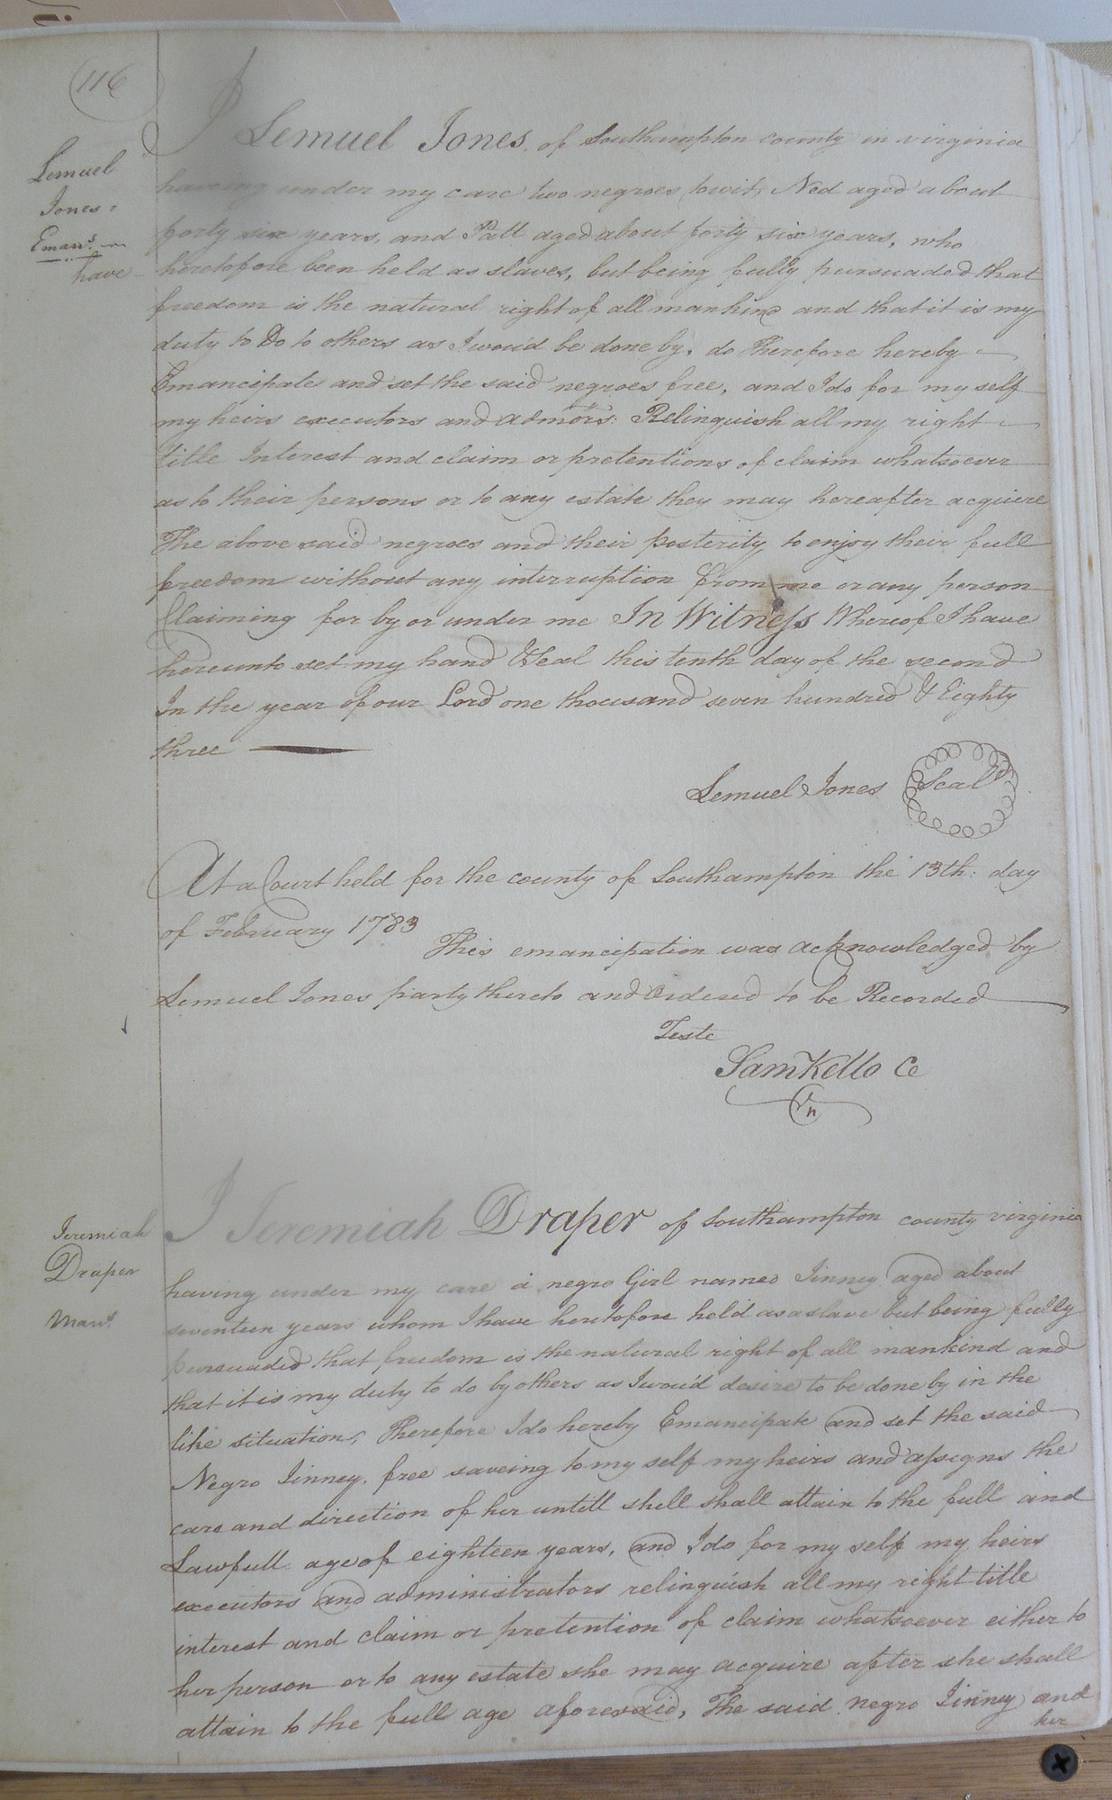 116
Lemuel
Jones
Eman.
have
I Lemuel Jones of Southampton county in virginia
having under my care two negroes towit, Ned aged about
forty six years, and Patt aged about forty six years, who
heretofore been held as slaves, but being fully pursuaded that
freedom is the natural right of all mankind and that it is my
duty to Do to others as I woud be done by, do Therefore hereby
Emancipate and set the said negroes free, and I do for my self
my heirs executors and admors: Relinquish all my right
title Interest and claim or pretentions of claim whatsoever
as to their persons or to any estate they may hereafter acquiere
The above said negroes and their posterity to enjoy their full
freedom without any interruption from me or any person
Claiming for by or under me In Witness Whereof I have
hereunto set my hand & Seal this tenth day of the second
In the year of our Lord one thousand seven hundred & Eighty
three
Lemuel Jones Seal
At a Court held for the county of Southampton the 13th: day
of February 1783
This emancipation was acknowledged by
Lemuel Jones party thereto and ordered to be Recorded
Teste
Sam Kello Ce
Jeremiah
Draper
Man.
I Jeremiah Draper of Southampton county virginia
having under my care a negro Girl named Jinney aged about
seventeen years whom I have heretofore held as a slave but being fully
pursuaded that freedom is the natural right of all mankind and
that it is my duty to do by others as I woud desire to be done by in the
like situation, Therefore I do hereby Emancipate and set the said
Negro Jinney. free saveing to my self my heirs and assigns the
care and direction of her untill shell shall attain to the full and
Lawfull age of eighteen years, and I do for my self my heirs
executors and administrators relinquish all my right title
interest and claim or pretention of claim whatsoever either to
her person or to any estate she may acquire after she shall
attain to the full age aforesaid, The said negro Jinney and
her